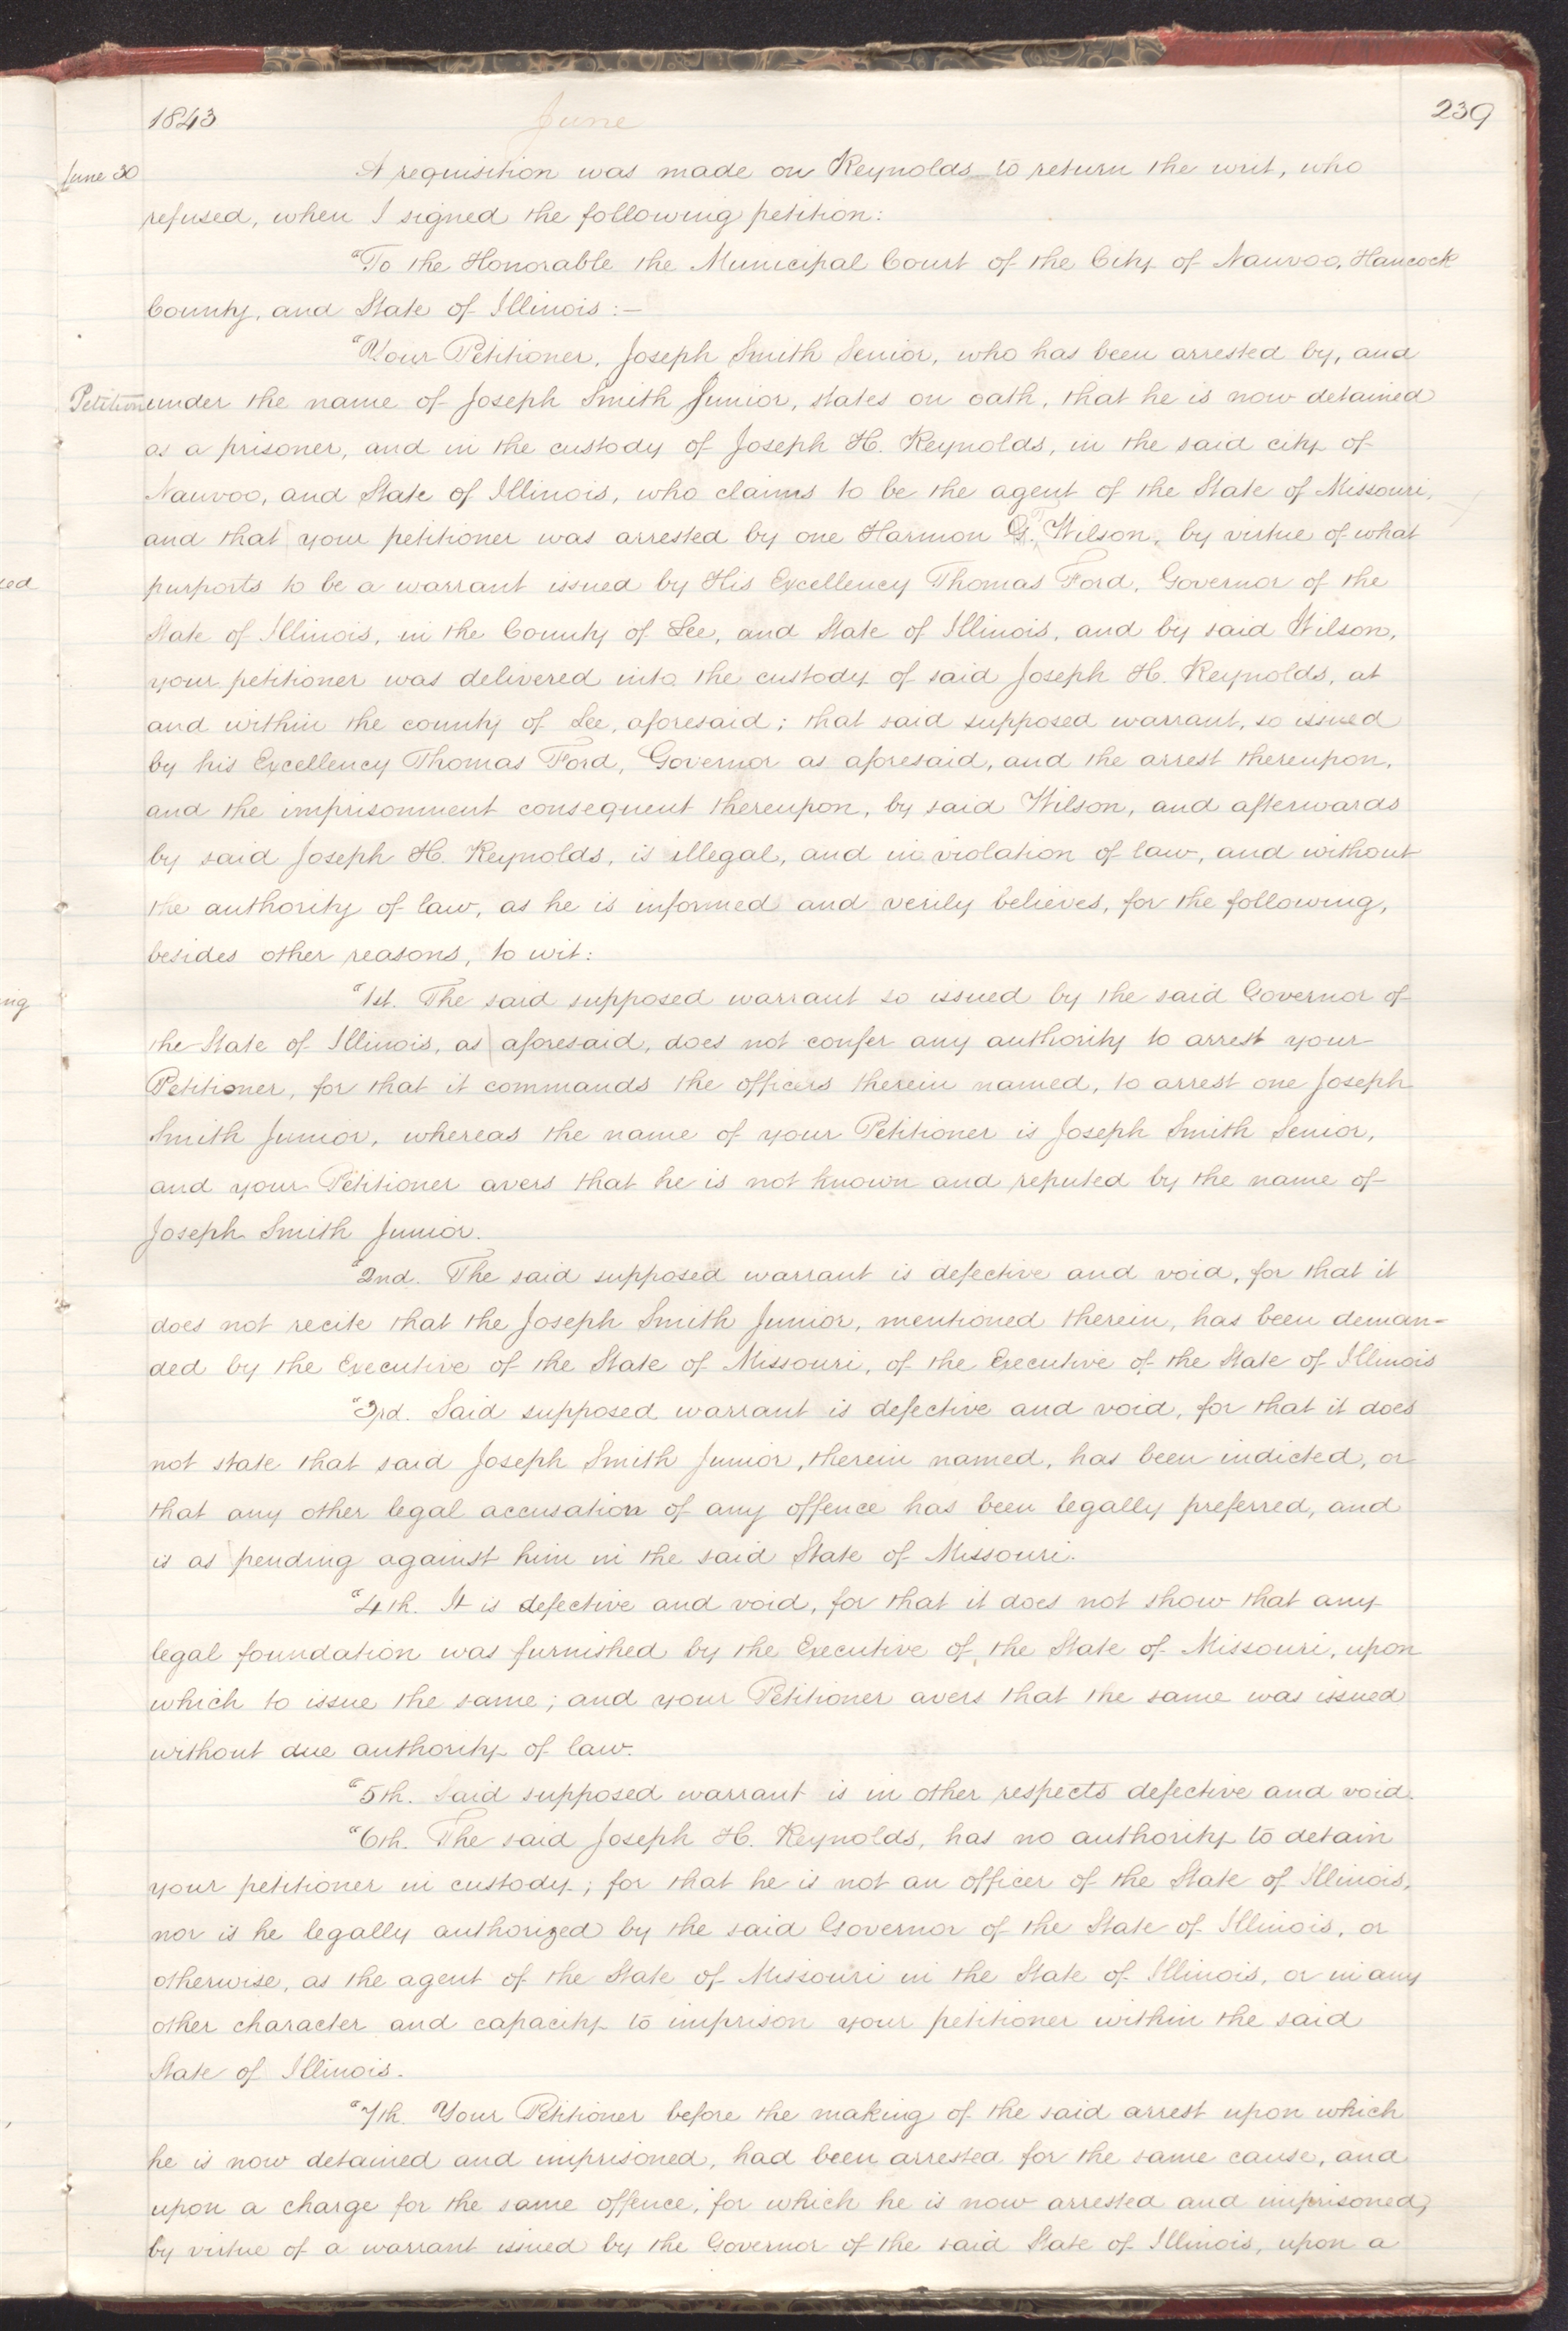 1843 June 239
June 30 A requisition was made on Reynolds to return the writ, who
refused, when I signed the following petition:
"To the Honorable the Municipal Court of the City of Nauvoo, Hancock
County, and State of Illinois:—
"Your Petitioner, Joseph Smith Senior, who has been arrested by, and
Petition under the name of Joseph Smith Junior, states on oath, that he is now detained
as a prisoner, and in the custody of Joseph H. Reynolds, in the said city of
Nauvoo, and State of Illinois, who claims to be the agent of the State of Missouri,
and that your petitioner was arrested by one Harmon Wilson, by virtue of what
purports to be a warrant issued by His Excellency Thomas Ford, Governor of the
State of Illinois, in the County of Lee, and State of Illinois, and by said Wilson,
your petitioner was delivered into the custody of said Joseph H. Reynolds, at
and within the county of Lee, aforesaid; that said supposed warrant, so issued
by his Excellency Thomas Ford, Governor as aforesaid, and the arrest thereupon,
and the imprisonment consequent thereupon, by said Wilson, and afterwards
by said Joseph H. Reynolds, is illegal, and in violation of law, and without
the authority of law, as he is informed and verily believes, for the following,
besides other reasons, to wit:
"1st. The said supposed warrant so issued by the said Governor of
the State of Illinois, as aforesaid, does not confer any authority to arrest your
Petitioner, for that it commands the officers therein named, to arrest one Joseph
Smith Junior, whereas the name of your Petitioner is Joseph Smith Senior,
and your Petitioner avers that he is not known and reputed by the name of
Joseph Smith Junior.
"2nd. The said supposed warrant is defective and void, for that it
does not recite that the Joseph Smith Junior, mentioned therein, has been deman-
ded by the Executive of the State of Missouri, of the Executive of the State of Illinois
"3rd. Said supposed warrant is defective and void, for that it does
not state that said Joseph Smith Junior, therein named, has been indicted, or
that any other legal accusation of any offence has been legally preferred, and
is as pending against him in the said State of Missouri.
"4th. It is defective and void, for that it does not show that any
legal foundation was furnished by the Executive of the State of Missouri, upon
which to issue the same; and your Petitioner avers that the same was issued
without due authority of law.
"5th. Said supposed warrant is in other respects defective and void.
"6th. The said Joseph H. Reynolds, has no authority to detain
your petitioner in custody; for that he is not an officer of the State of Illinois,
nor is he legally authorized by the said Governor of the State of Illinois, or
otherwise, as the agent of the State of Missouri in the State of Illinois, or in any
other character and capacity to imprison your petitioner within the said
State of Illinois.
"7th. Your Petitioner before the making of the said arrest upon which
he is now detained and imprisoned, had been arrested for the same cause, and
upon a charge for the same offence, for which he is now arrested and imprisoned,
by virtue of a warrant issued by the Governor of the said State of Illinois, upon a